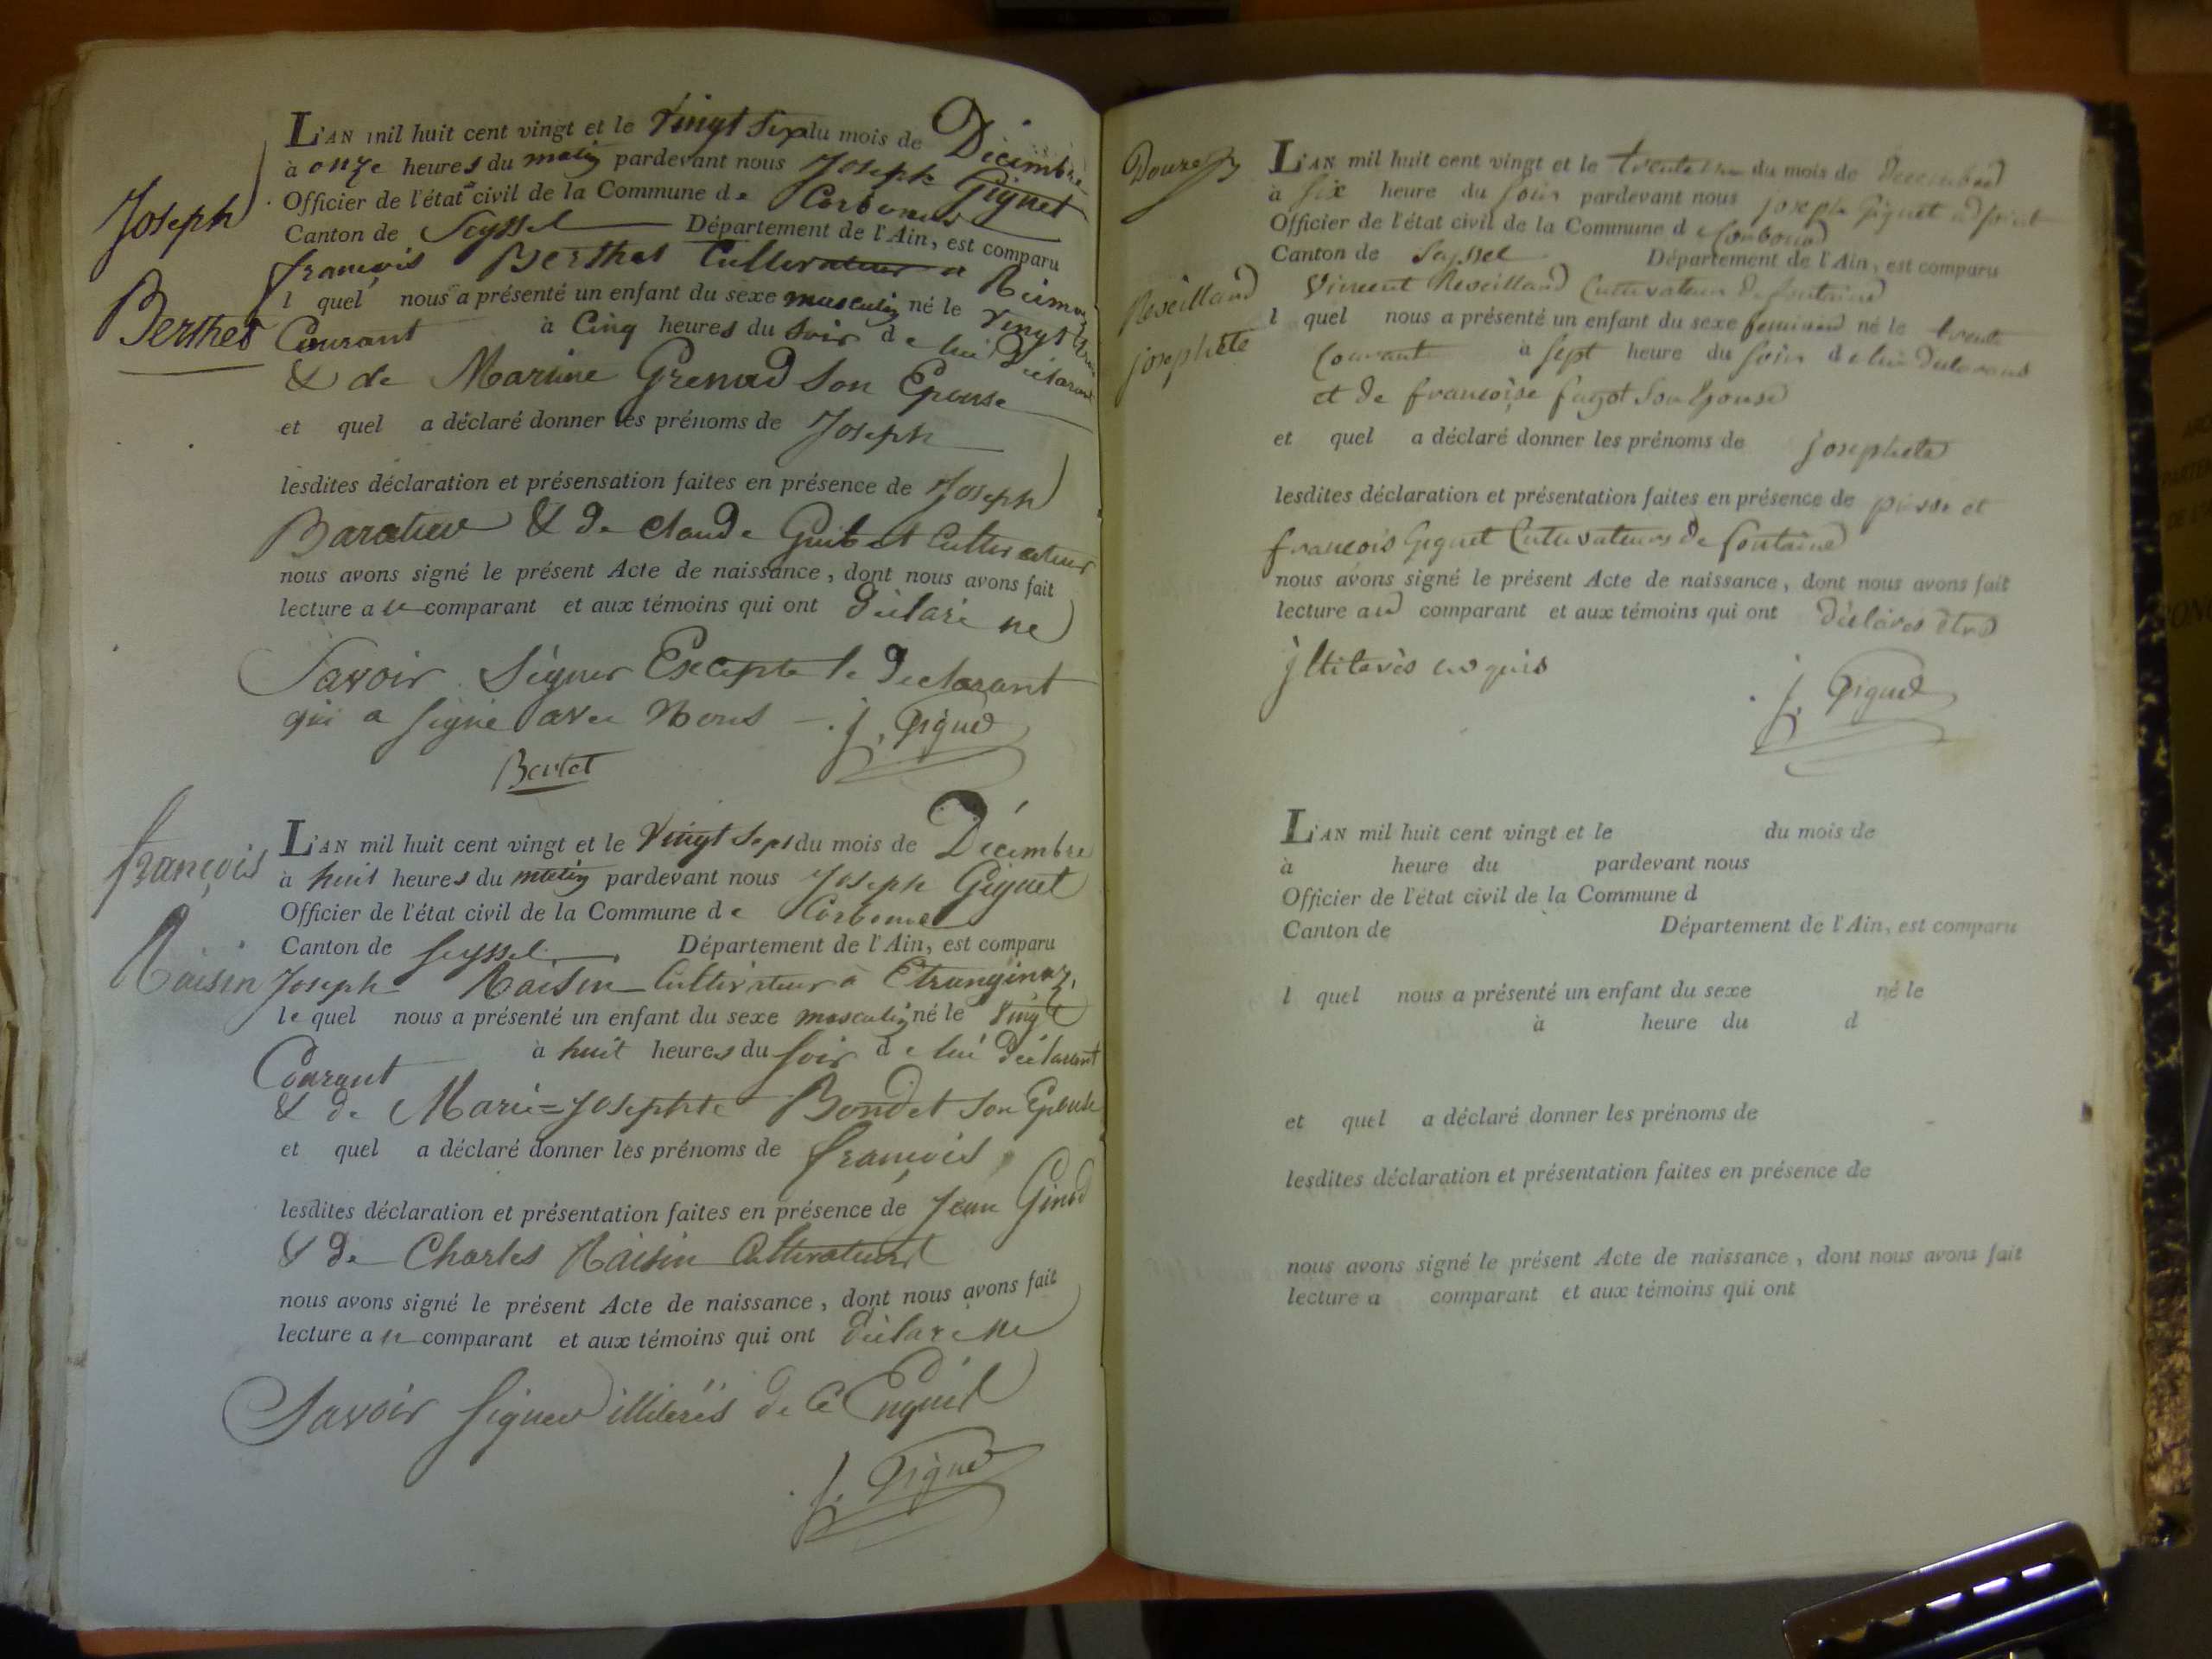 Joseph
Berthet
L'AN mil huit cent vingt et le Vingt Sept du mois de Décembre
à onze heures du matin pardevant nous Joseph Giguet
Officier de l'état civil de la Commune de Corbonod
Canton de Seyssel Département de l'Ain, est comparu
françois Berthet Cultivateur a
l quel nous a présenté un enfant du sexe masculin né le Vingt
Courant à Cinq heures du Soir de lui Déclarant
& de Marine Grenod Son Epouse
et quel a déclaré donner les prénoms de Joseph
lesdites déclaration et présensation faites en présence de Joseph
& de Claude Guibet Cultivateur
nous avons signé le présent Acte de naissance, dont nous avons fait
lecture a u comparant et aux témoins qui ont déclaré ne
Savoir Signer Excepté le Déclarant
qui a signé avec Nous J. Giguet
Bertet
françois
Raisin
L'AN mil huit cent vingt et le Vingt Sept du mois de Décembre
à huit heures du matin pardevant nous Joseph Giguet
Officier de l'état civil de la Commune de Corbonod
Canton de Seyssel Département de l'Ain, est comparu
Joseph Raisin Cultivateur à Etranginaz,
le quel nous a présenté un enfant du sexe masculin né le Vingt
Courant à huit heures du Soir de lui Déclarant
& de Marie=Josephte Bondet Son Epouse
et quel a déclaré donner les prénoms de françois
lesdites déclaration et présentation faites en présence de Jean Ginod
& de Charles Raisin Cultivateurs
nous avons signé le présent Acte de naissance, dont nous avons fait
lecture a u comparant et aux témoins qui ont déclaré ne
Savoir Signer illiterés de Ce Enquis
J. Giguet
Reveilland
josephete
L'AN mil huit cent vingt et le trente du mois de decembre
à six heure du soir pardevant nous joseph Giguet adjoint
Officier de l'état civil de la Commune d Corbonod
Canton de Seyssel Département de l'Ain, est comparu
Vincent Reveilland Cultivateur de fontaine
l quel nous a présenté un enfant du sexe feminin né le trente
Courant à sept heure du soir de lui declarant
et de françoise fagot son Epouse
et quel a déclaré donner les prénoms de josephete
lesdites déclaration et présentation faites en présence de pierre et
françois Giguet Cultivateurs de fontaine
nous avons signé le présent Acte de naissance, dont nous avons fait
lecture au comparant et aux témoins qui ont déclarés être
jlliterès enquis
J. Giguet
L'AN mil huit cent vingt et le du mois de
à heure du pardevant nous
Officier de l'état civil de la Commune d
Canton de Département de l'Ain, est comparu
l quel nous a présenté un enfant du sexe né le
à heure du d
et quel a déclaré donner les prénoms de
lesdites déclaration et présentation faites en présence de
nous avons signé le présent Acte de naissance, dont nous avons fait
lecture a comparant et aux témoins qui ont